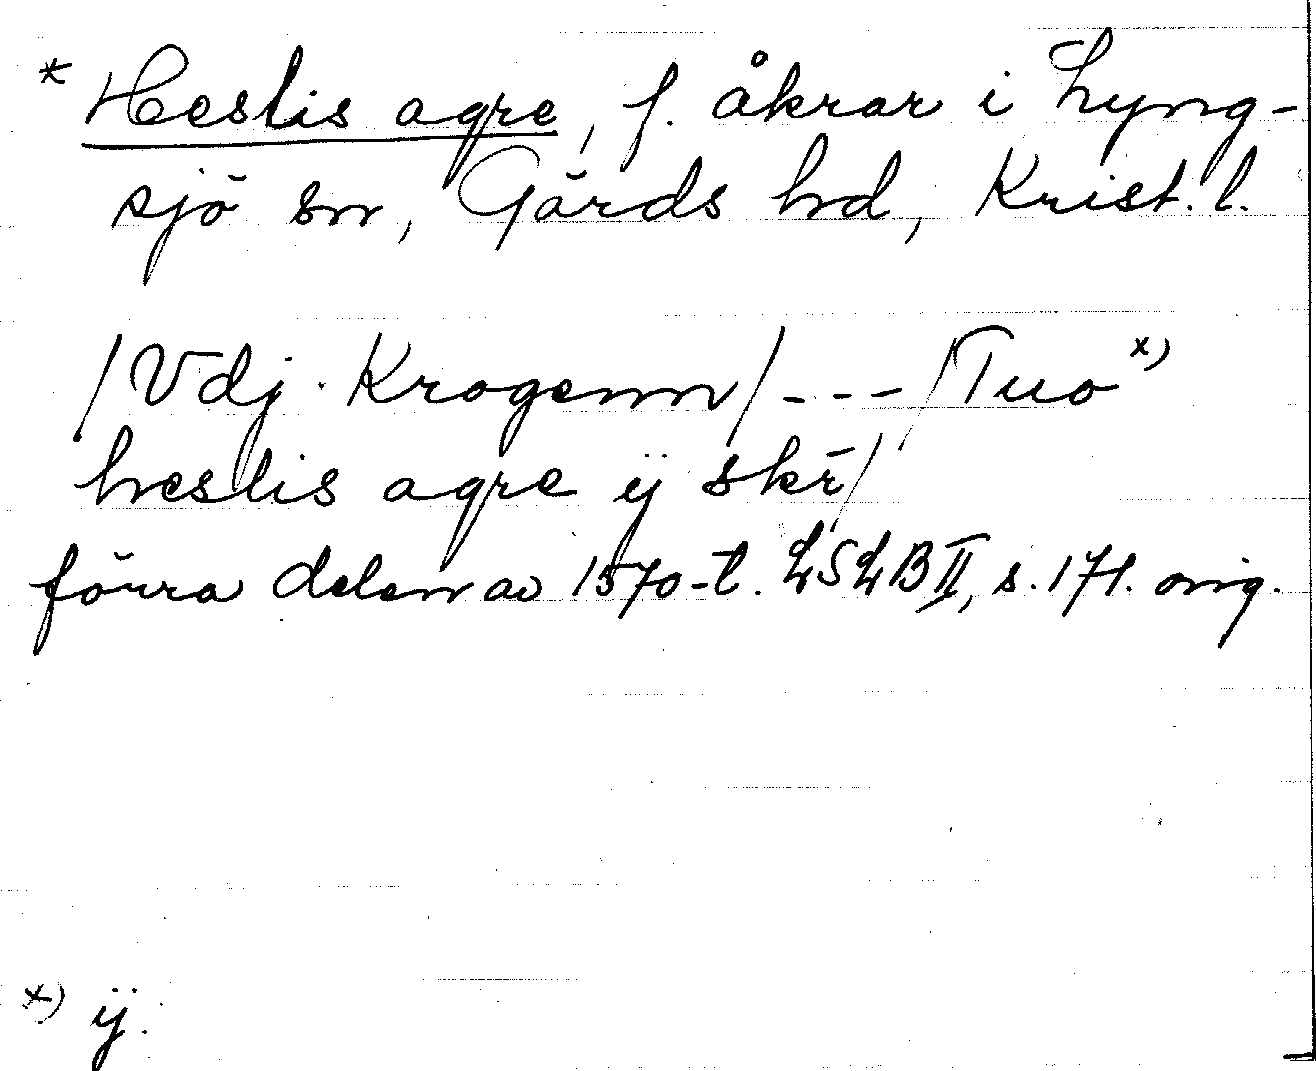 * Heslis agre, f. åkrar i Lyng-
sjö sn, Gärds hd, Krist. l.
/Vdj Krogenn/ - - - /Tuo x)
heslis agre ÿ skr/
förra delen av 1570-t. LSLB II, s. 171. orig.
x) ÿ.